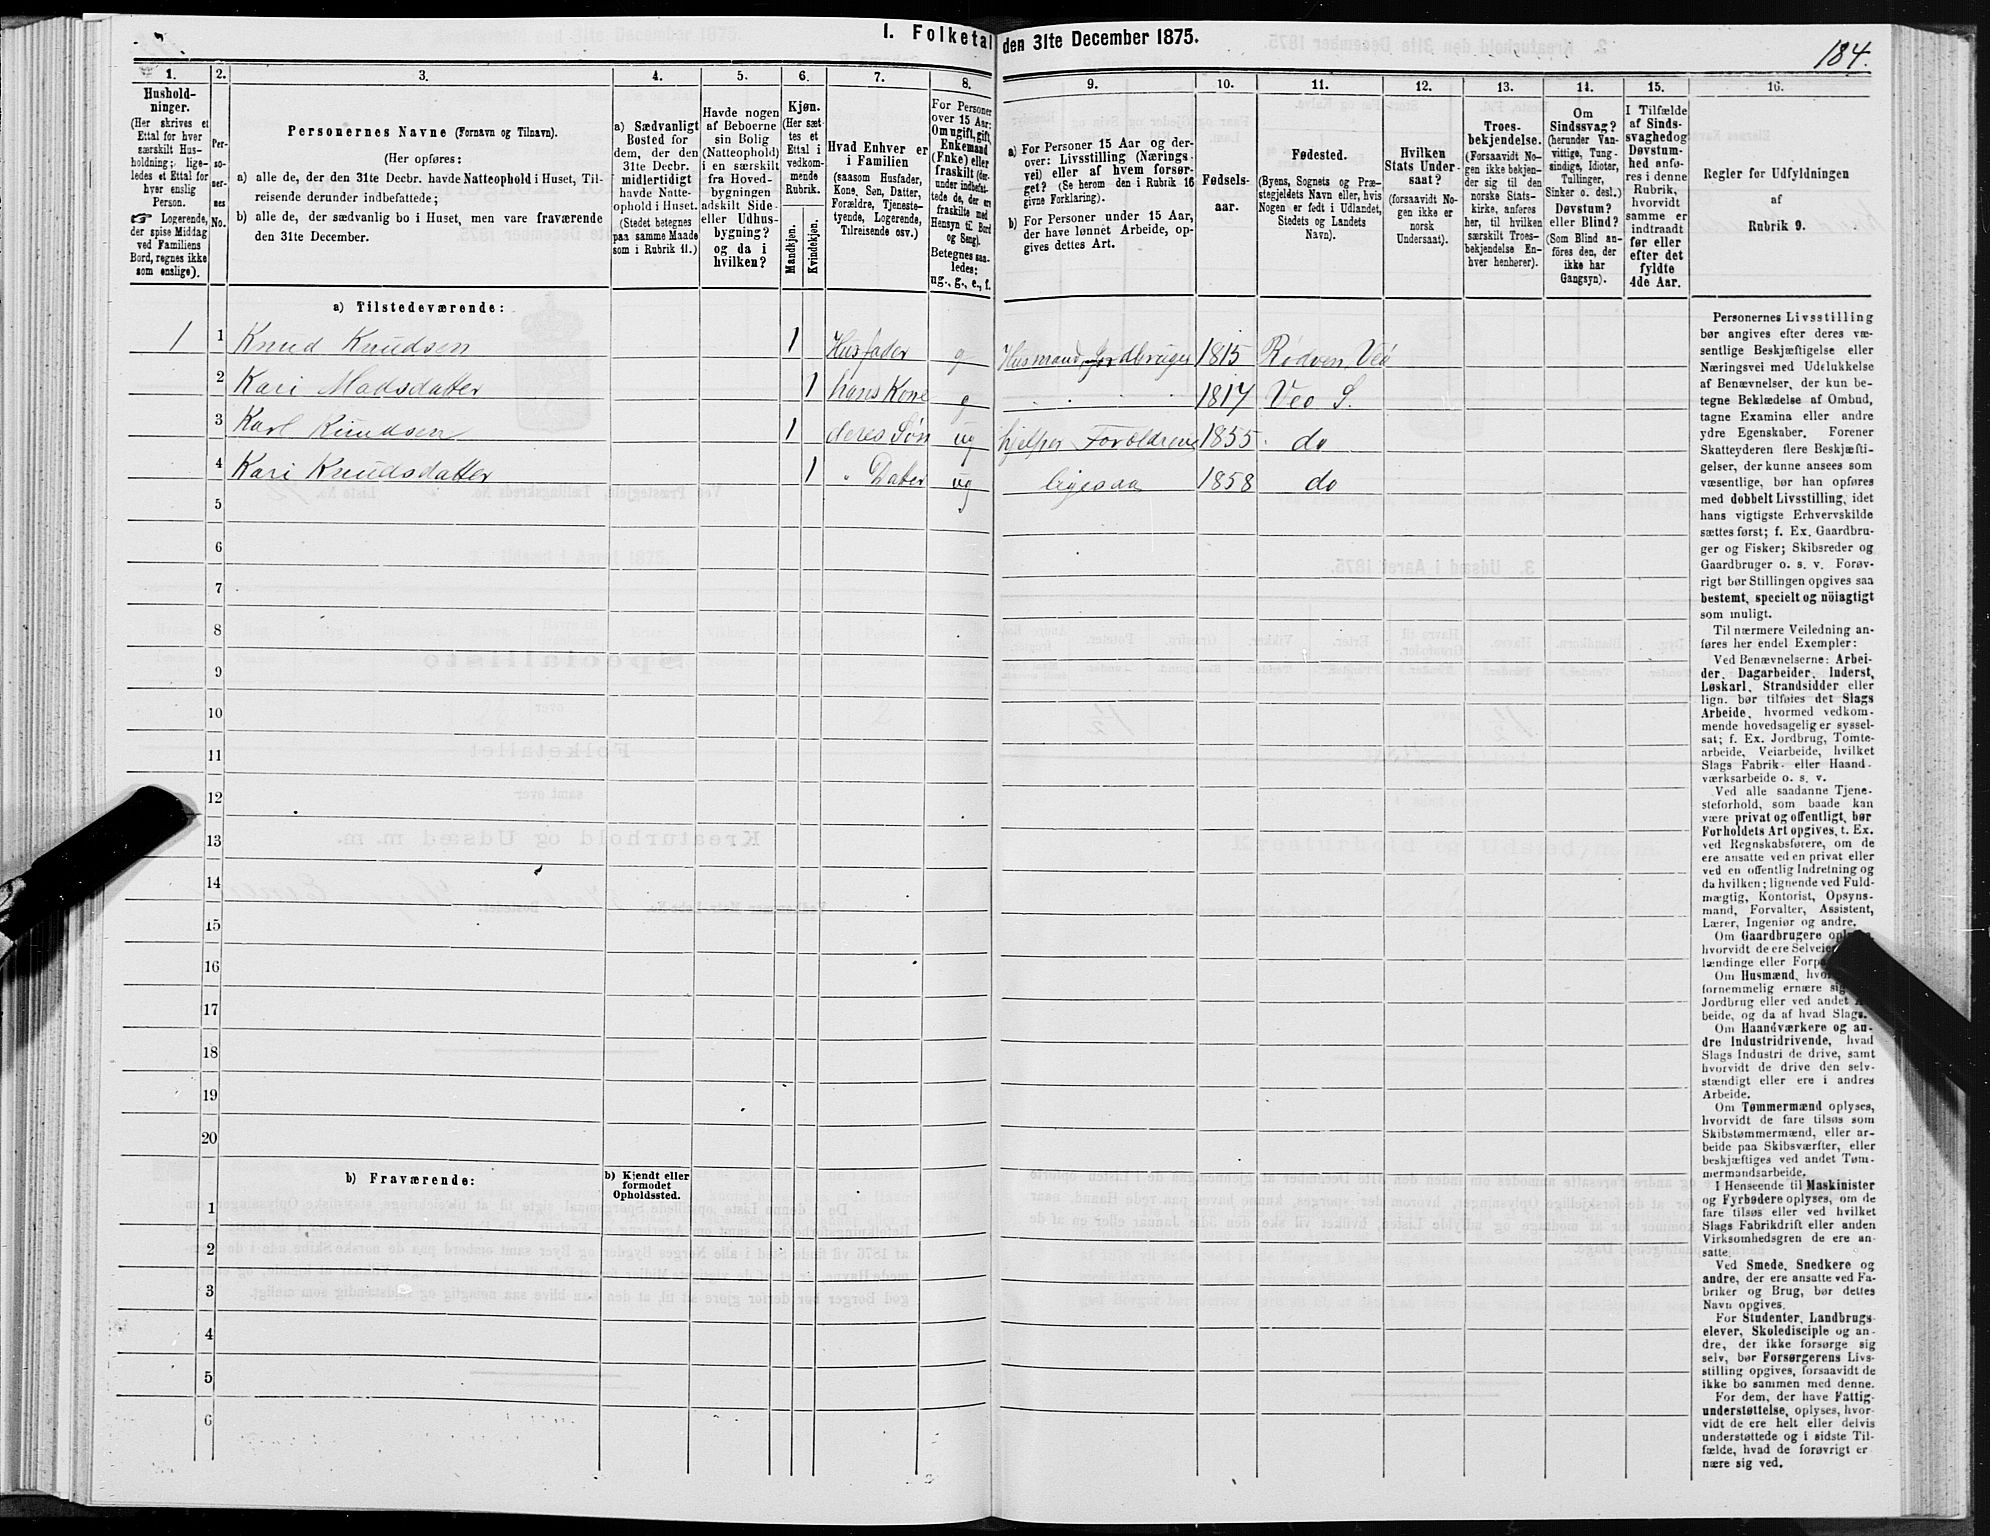 I. Folketal den 31te December 1875.
184.
1.
Hushold-
ninger.
(Her skrives et
Ettal for hver
særskilt Hus-
holdning; lige-
ledes et Ettal for
hver enslig
Person.
Logerende,
der spise Middag
ved Familiens
Bord, regnes ikke
som enslige).
2.
Per-
so-
ner-
nes
No.
3.
Personernes Navne (Fornavn og Tilnavn).
(Her opføres:
a) alle de, der den 31te Decbr. havde Natteophold i Huset, Til-
reisende derunder indbefattede;
b) alle de, der sædvanlig bo i Huset, men vare fraværende
den 31te December.
4.
a) Sædvanligt
Bosted for
dem, der den
31te Decbr.
midlertidigt
havde Natte-
ophold i Huset.
(Stedet betegnes
paa samme Maade
som i Rubrik 11.)
5.
Havde nogen
af Beboerne
sin Bolig
(Natteophold)
i en særskilt
fra Hoved-
bygningen
adskilt Side-
eller Udhus-
bygning?
og da i
hvilken?
6.
Kjøn.
(Her sæt-
tes et
Ettal i
vedkom-
mende
Rubrik.
Mandkjøn.
Kvindekjøn.
7.
Hvad Enhver er
i Familien
(saasom Husfader,
Kone, Søn, Datter,
Forældre, Tjeneste-
tyende, Logerende,
Tilreisende osv.)
8.
For Personer
over 15 Aar:
Om ugift, gift,
Enkemand
(Enke) eller
fraskilt (der-
under indbefat-
tede de, der ere
fraskilte med
Hensyn til Bord
og Seng).
Betegnes saa-
ledes:
ug., g., e., f.
9.
a) For Personer 15 Aar og der-
over: Livsstilling (Nærings-
vei) eller af hvem forsør-
get? (Se herom den i Rubrik 16
givne Forklaring).
b) For Personer under 15 Aar,
der have lønnet Arbeide, op-
gives dettes Art.
10.
Fødsels-
aar.
11.
Fødested.
(Byens, Sognets og Præ-
stegjeldets Navn eller, hvis
Nogen er født i Udlandet,
Stedets og Landets
Navn).
12.
Hvilken
Stats Under-
saat?
(forsaavidt No-
gen ikke er
norsk
Undersaat).
13.
Troes-
bekjendelse.
(Forsaavidt No-
gen ikke bekjen-
der sig til den
norske Stats-
kirke, anføres
her, til hvilken
særskilt Troes-
bekjendelse En-
hver henhører).
14.
Om
Sindssvag?
(herunder Van-
vittige, Tung-
sindige, Idioter,
Tullinger,
Sinker o. desl.)
Døvstum?
eller Blind?
(Som Blind an-
føres den, der
ikke har
Gangsyn).
15.
I Tilfælde
af Sinds-
svaghed og
Døvstum-
hed anfø-
res i denne
Rubrik,
hvorvidt
samme er
indtraadt
før eller
efter det
fyldte
4de Aar.
16.
Regler for Udfyldningen
af
Rubrik 9.
a) Tilstedeværende:
1 1 Knud Knudsen 1 Husfader g Husmand, Jordbruger 1815 Rødven, Veø
2 Kari Madsdatter 1 hans Kone g 1817 Veø S.
3 Karl Knudsen 1 deres Søn ug hjelper Forældrene 1855 do
4 Kari Knudsdatter 1 " Datter ug ligesaa 1858 do
5
6
7
8
9
10
11
12
13
14
15
16
17
18
19
20
b) Fraværende:
b) Kjendt eller
formodet
Opholdssted.
1
2
3
4
5
6
Personernes Livsstilling
bør angives efter deres væ-
sentlige Beskjæftigelse eller
Næringsvei med Udelukkelse
af Benævnelser, der kun be-
tegne Beklædelse af Ombud,
tagne Examina eller andre
ydre Egenskaber. Forener
Skatteyderen flere Beskjæfti-
gelser, der kunne ansees som
væsentlige, bør han opføres
med dobbelt Livsstilling, idet
hans vigtigste Erhvervskilde
sættes først; f. Ex. Gaardbru-
ger og Fisker; Skibsreder og
Gaardbruger o. s. v. Forøv-
rigt bør Stillingen opgives saa
bestemt, specielt og nöiagtigt
som muligt.
Til nærmere Veiledning an-
føres her endel Exempler:
Ved Benævnelserne: Arbei-
der, Dagarbeider, Inderst,
Løskarl, Strandsidder eller
lign. bør tilføies det Slags
Arbeide, hvormed vedkom-
mende hovedsagelig er syssel-
sat; f. Ex. Jordbrug, Tomte-
arbeide, Veiarbeide, hvilket
Slags Fabrik- eller Haand-
værksarbeide o. s. v.
Ved alle saadanne Tjene-
steforhold, som baade kan
være privat og offentligt, bør
Forholdets Art opgives, t. Ex.
ved Regnskabsførere, om de
ere ansatte ved en privat eller
ved en offentlig Indretning og
da hvilken; lignende ved Fuld-
mægtig, Kontorist, Opsyns-
mand, Forvalter, Assistent,
Lærer, Ingeniør og andre.
Om Gaardbrugere oplyses,
hvorvidt de ere Selveier
lændinge eller Forp
Om Husmænd, hvor
fornemmelig ernære sig
Jordbrug eller ved andet
beide, og da af hvad Slags.
Om Haandværkere og an-
dre Industridrivende, hvad
Slags Industri de drive, samt
hvorvidt de drive den selv-
stændigt eller ere i andres
Arbeide.
Om Tømmermænd oplyses,
hvorvidt de fare tilsøs som
Skibstømmermænd, eller ar-
beide paa Skibsværfter, eller
beskjæftiges ved andet Tøm-
mermandsarbeide.
I Henseende til Maskinister
og Fyrbødere oplyses, om de
fare tilsøs eller ved hvilket
Slags Fabrikdrift eller anden
Virksomhedsgren de ere an-
satte.
Ved Smede, Snedkere og
andre, der ere ansatte ved Fa-
briker og Brug, bør dettes
Navn opgives.
For Studenter, Landbrugs-
elever, Skoledisciple og an-
dre, der ikke forsørge sig
selv, bør Forsørgerens Livs-
stilling opgives, forsaavidt de
ikke bo sammen med denne.
For dem, der have Fattig-
understøttelse, oplyses, hvor-
vidt de ere helt eller delvis
understøttede og i sidste Til-
fælde, hvad de forøvrigt er-
nære sig ved.